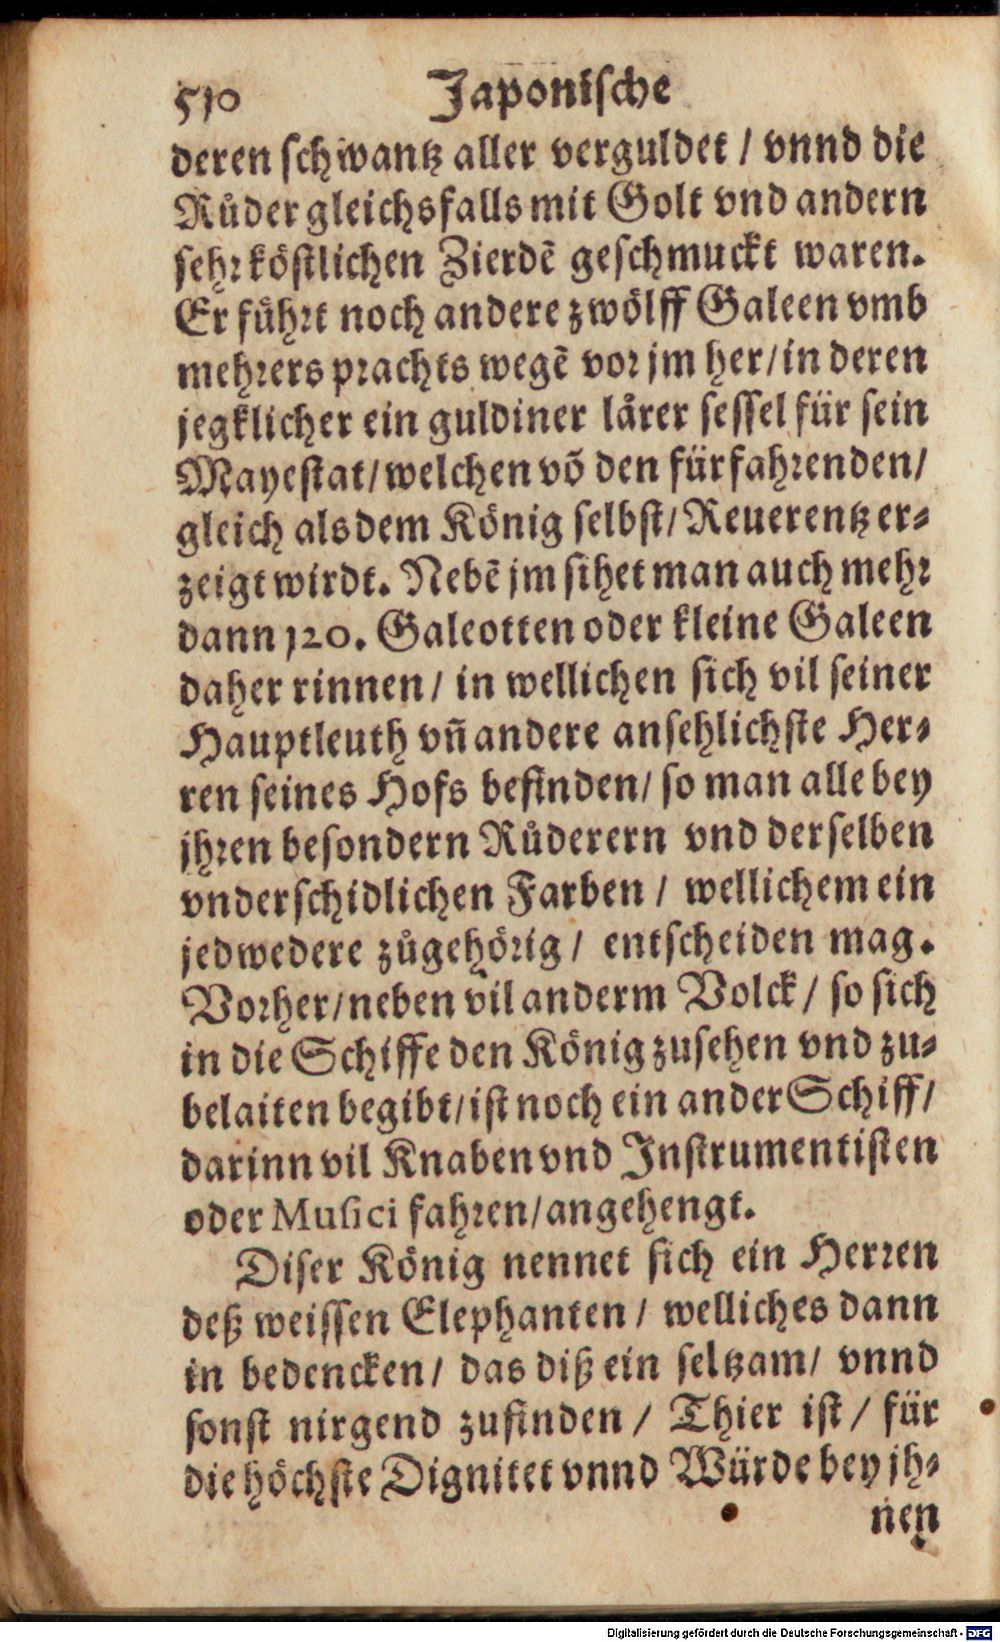 510 Japonische
deren schwantz aller verguldet / vnnd die
Ruͦder gleichsfalls mit Golt vnd andern
sehr köstlichen Zierdē geschmuckt waren.
Er fuͤhrt noch andere zwoͤlff Galeen vmb
mehrers prachts wegē vor jm her / in deren
jegklicher ein guldiner laͤrer sessel für sein
Mayestat / welchen vō den fürfahrenden /
gleich als dem König selbst / Reuerentz er⸗
zeigt wirdt. Nebē jm sihet man auch mehr
dann 120. Galeotten oder kleine Galeen
daher rinnen / in wellichen sich vil seiner
Hauptleuth vñ andere ansehlichste Her⸗
ren seines Hofs befinden / so man alle bey
jhren besondern Ruͦderern vnd derselben
vnderschidlichen Farben / wellichem ein
jedwedere zuͦgehörig / entscheiden mag.
Vorher / neben vil anderm Volck / so sich
in die Schiffe den König zusehen vnd zu⸗
belaiten begibt / ist noch ein ander Schiff /
darinn vil Knaben vnd Instrumentisten
oder Musici fahren / angehengt.
Diser König nennet sich ein Herren
deß weissen Elephanten / welliches dann
in bedencken / das diß ein seltzam / vnnd
sonst nirgend zufinden / Thier ist / für
die höchste Dignitet vnnd Würde bey jh⸗
nen
Digitalisierung gefördert durch die Deutsche Forschungsgemeinschaft - DFG